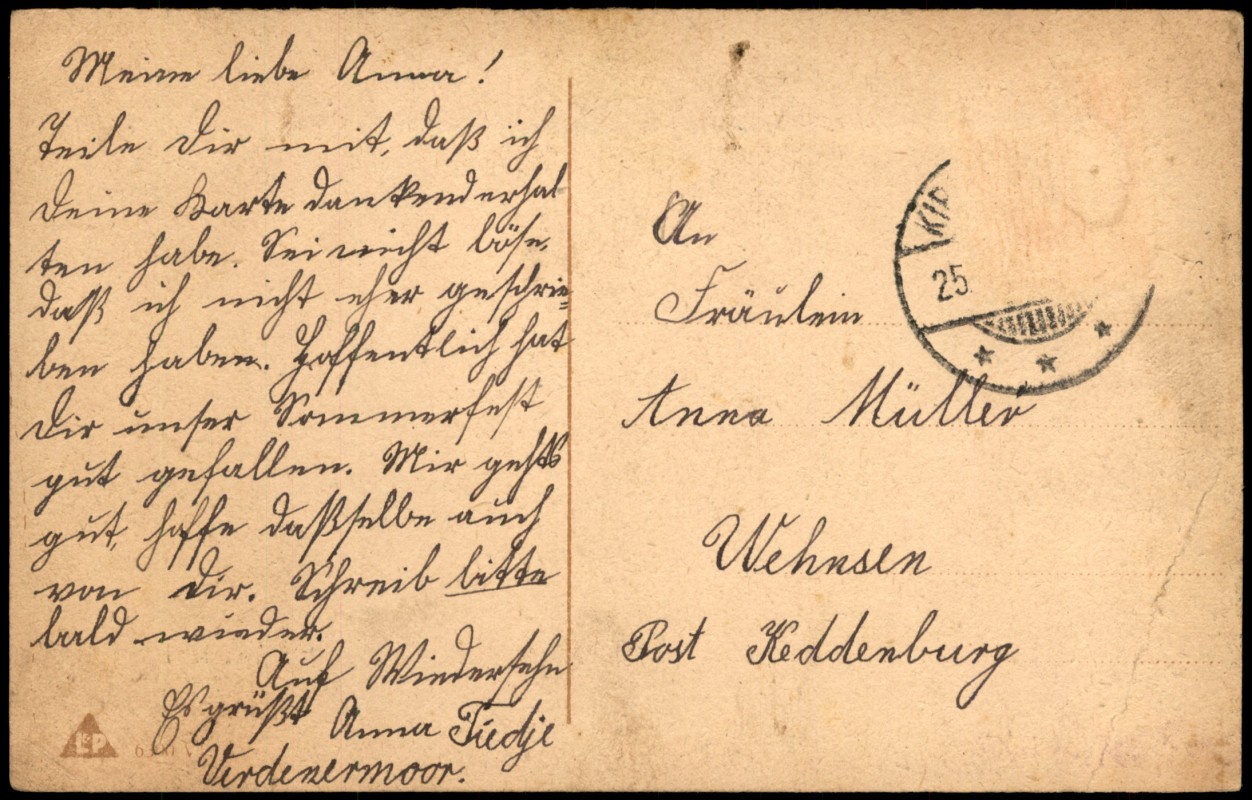 Meine liebe Anna!
Teile Dir mit, daß ich
Deine Karte dankend erhal
ten habe. Sei nicht böse,
daß ich nicht eher geschrie=
ben haben. Hoffentlich hat
Dir unser Sommerfest
gut gefallen. Mir gehts
gut, hoffe daßselbe auch
von Dir. Schreib bitte
bald wieder.
Auf Wiedersehn
Es grüßt Anna Tiedje
Verdenermoor.
L&P
An
Fräulein
Anna Müller
Wehnsen
Post Heddenburg
KIR
25